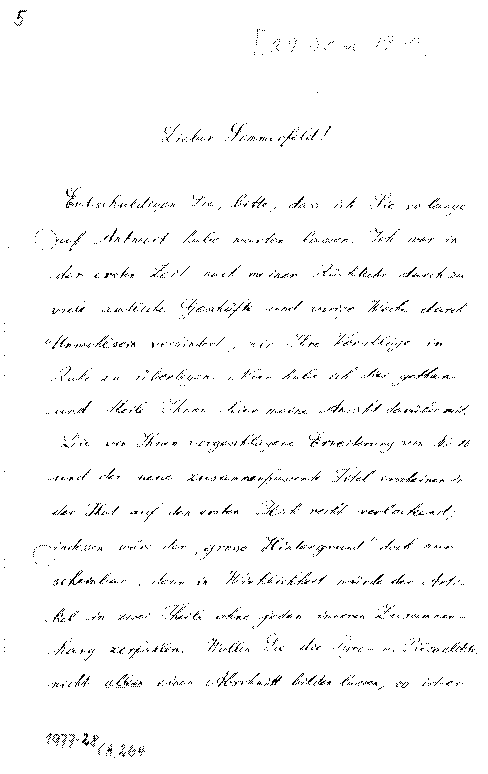 5
Lieber Sommerfeld!
Entschuldigen Sie, bitte, dass ich Sie so lange
auf Antwort habe warten lassen. Ich war in
der ersten Zeit nach meiner Rückkehr durch zu
viele amtliche Geschäfte und einige Woche durch
Unwohlsein verhindert, mir Ihre Vorschläge in
Ruhe zu überlegen. Nun habe ich dies gethan
und theile Ihnen hier meine Ansicht darüber mit.
Die von Ihnen vorgeschlagene Erweiterung von No 16
und der neue zusammenfassende Titel erscheinen in
der That auf den ersten Blick recht verlockend;
indessen wäre der „grosse Hintergrund" doch nur
scheinbar, denn in Wirklichkeit würde der Arti-
kel in zwei Theile ohne jeden inneren Zusammen-
hang zerfallen. Wollen Sie die Pyro- u. Piezoelektr.
nicht allein einen Abschnitt bilden lassen, so ist er
1977-28/A,264